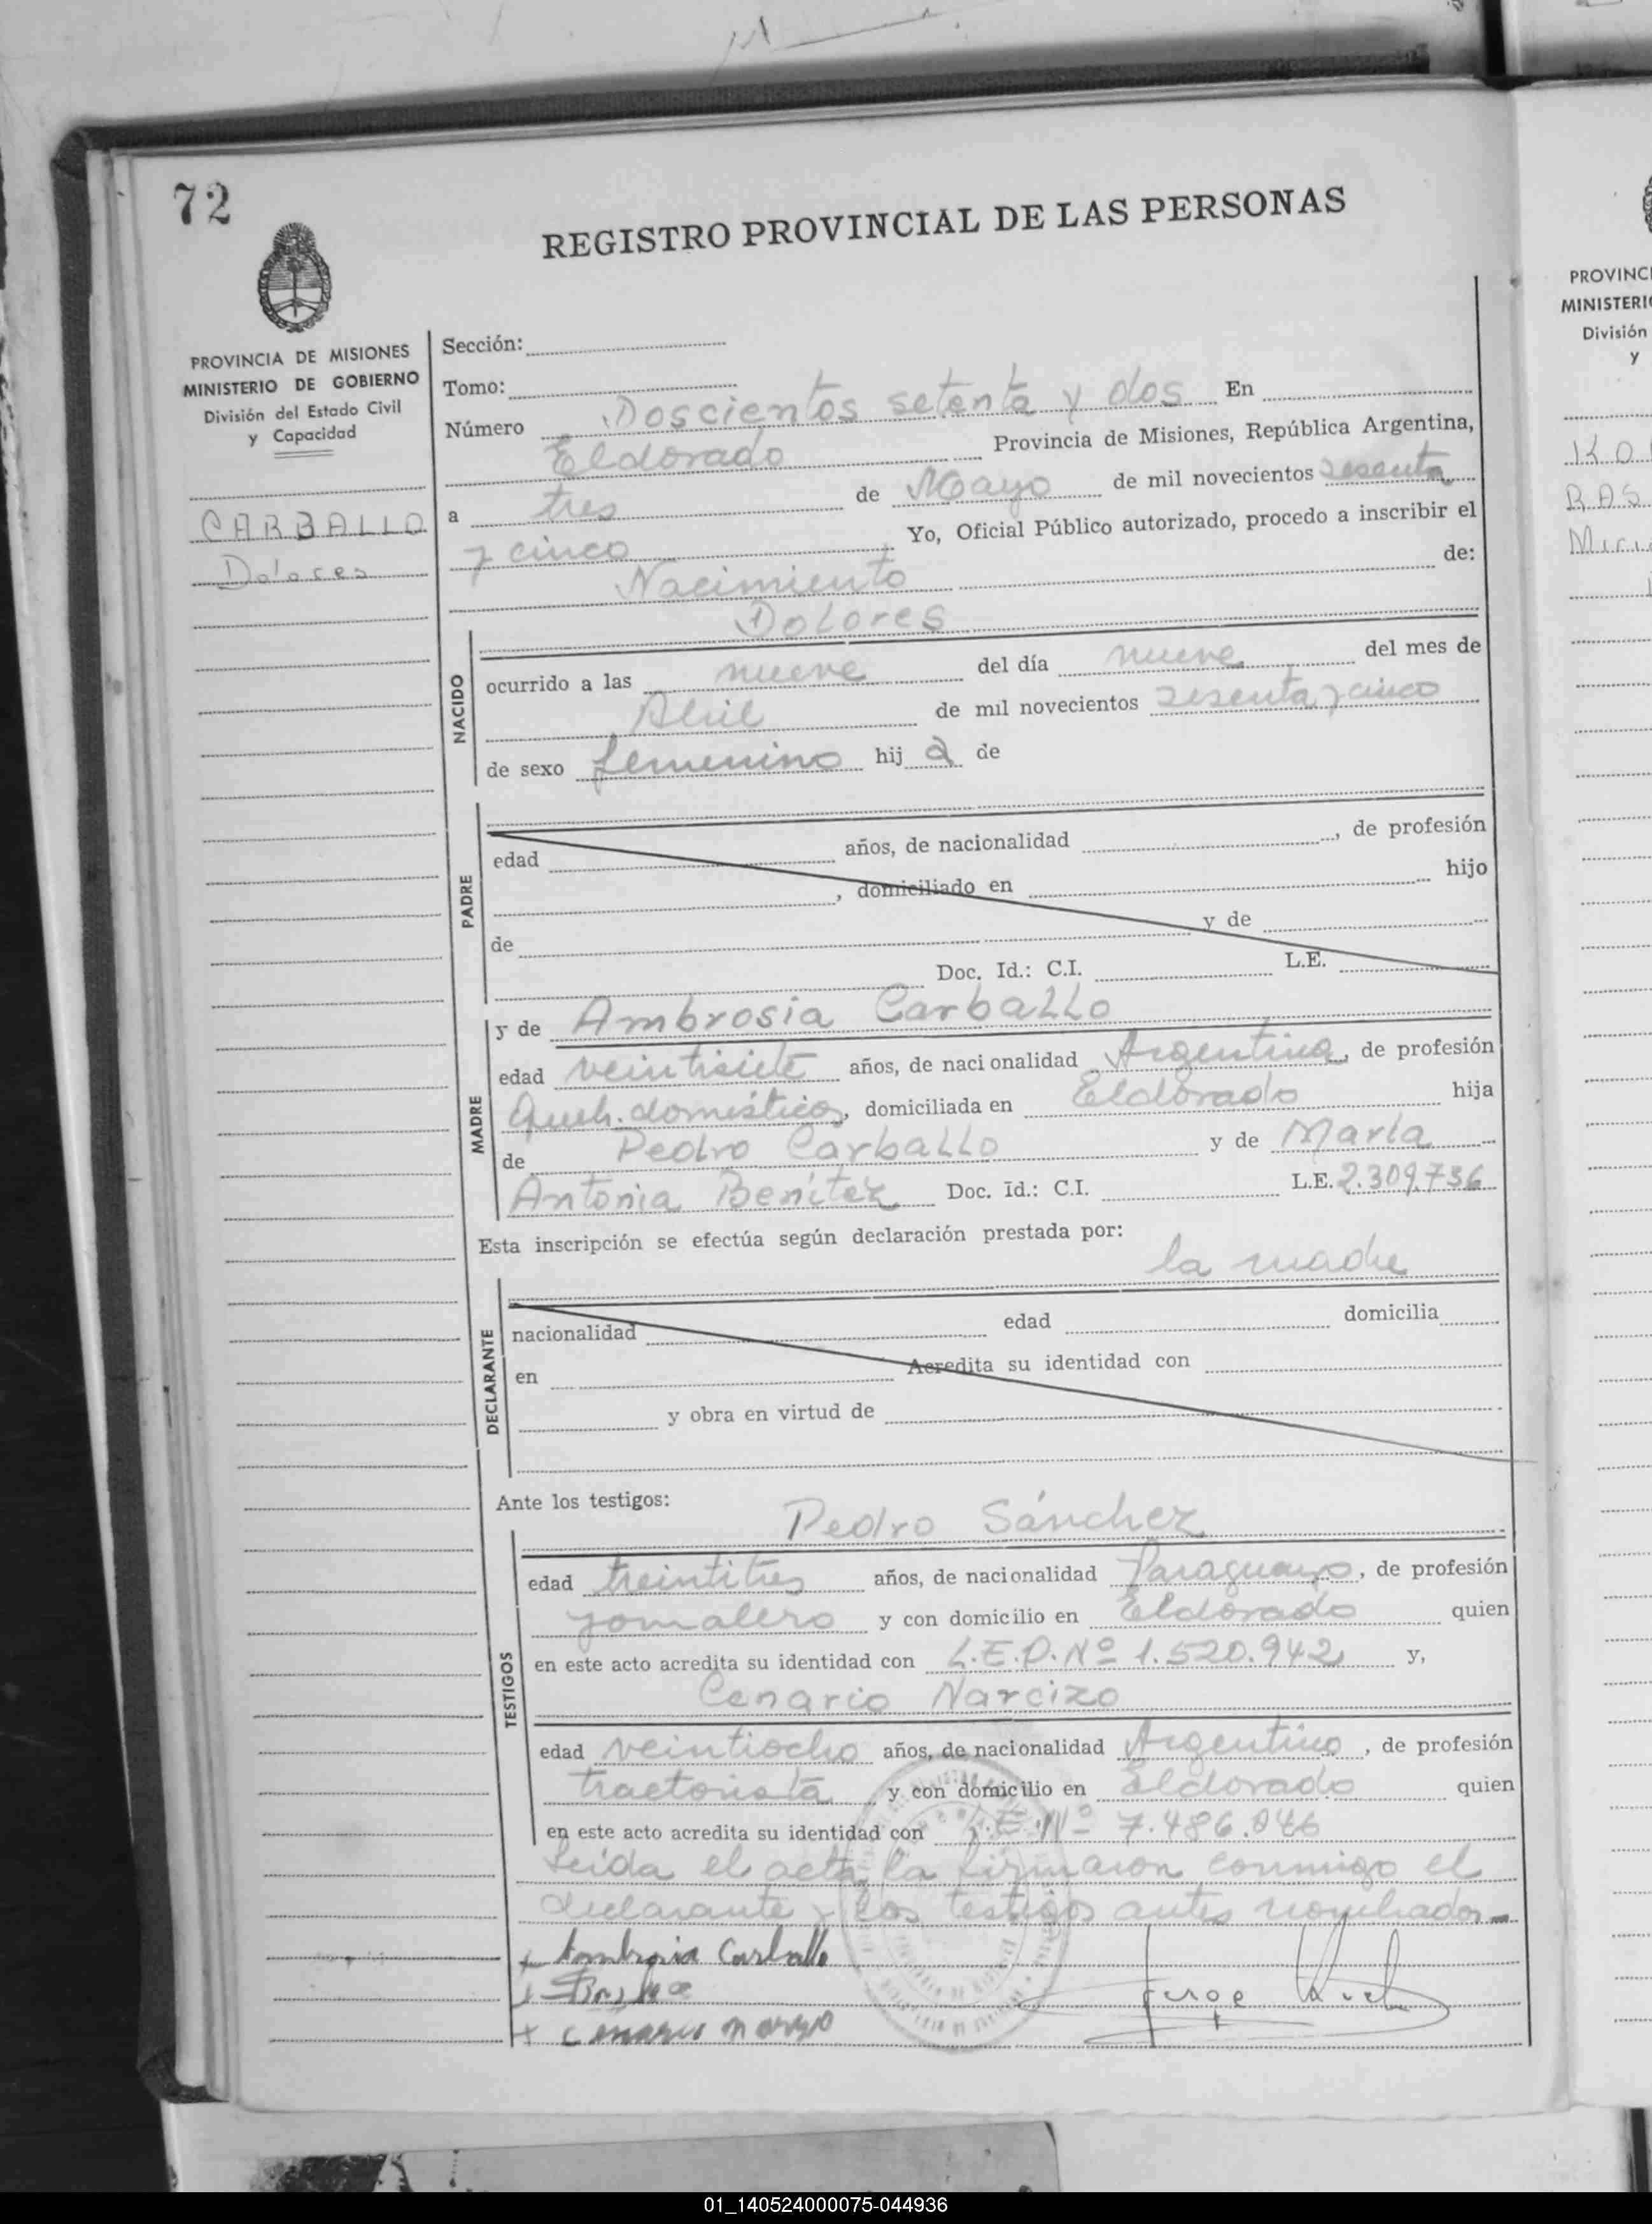 72
REGISTRO PROVINCIAL DE LAS PERSONAS
PROVINCIA DE MISIONES
MINISTERIO DE GOBIERNO
División del Estado Civil
y Capacidad
CARBALLO
Dolores
Sección:
Tomo:
Número Doscientos setenta y dos En
Eldorado Provincia de Misiones, República Argentina,
a tres de Mayo de mil novecientos sesenta
y cinco Yo, Oficial Público autorizado, procedo a inscribir el
Nacimiento de:
Dolores
NACIDO
ocurrido a las nueve del día nueve del mes de
Abril de mil novecientos sesenta y cinco
de sexo femenino hij a de
PADRE
edad años, de nacionalidad , de profesión
, domiciliado en hijo
de y de
Doc. Id.: C.I. L.E.
MADRE
y de Ambrosia Carballo
edad veintisiete años, de nacionalidad Argentina, de profesión
Queh. domésticos, domiciliada en Eldorado hija
de Pedro Carballo y de María
Antonia Benítez Doc. Id.: C.I. L.E. 2.309.736
Esta inscripción se efectúa según declaración prestada por:
la madre
DECLARANTE
nacionalidad edad domicilia
en Acredita su identidad con
y obra en virtud de
Ante los testigos:
Pedro Sánchez
TESTIGOS
edad treintitres años, de nacionalidad Paraguayo, de profesión
jornalero y con domicilio en Eldorado quien
en este acto acredita su identidad con L.E.P. Nº 1.520.942 y,
Cenario Narcizo
edad veintiocho años, de nacionalidad Argentino, de profesión
tractorista y con domicilio en Eldorado quien
en este acto acredita su identidad con L.E. Nº 7.486.046
Leída el acta la firmaron conmigo el
declarante y los testigos antes nombrados.-
+ Ambrosia Carballo
+ cenario narzo
Jorge
PROVINC
MINISTERI
División
y
01_140524000075-044936